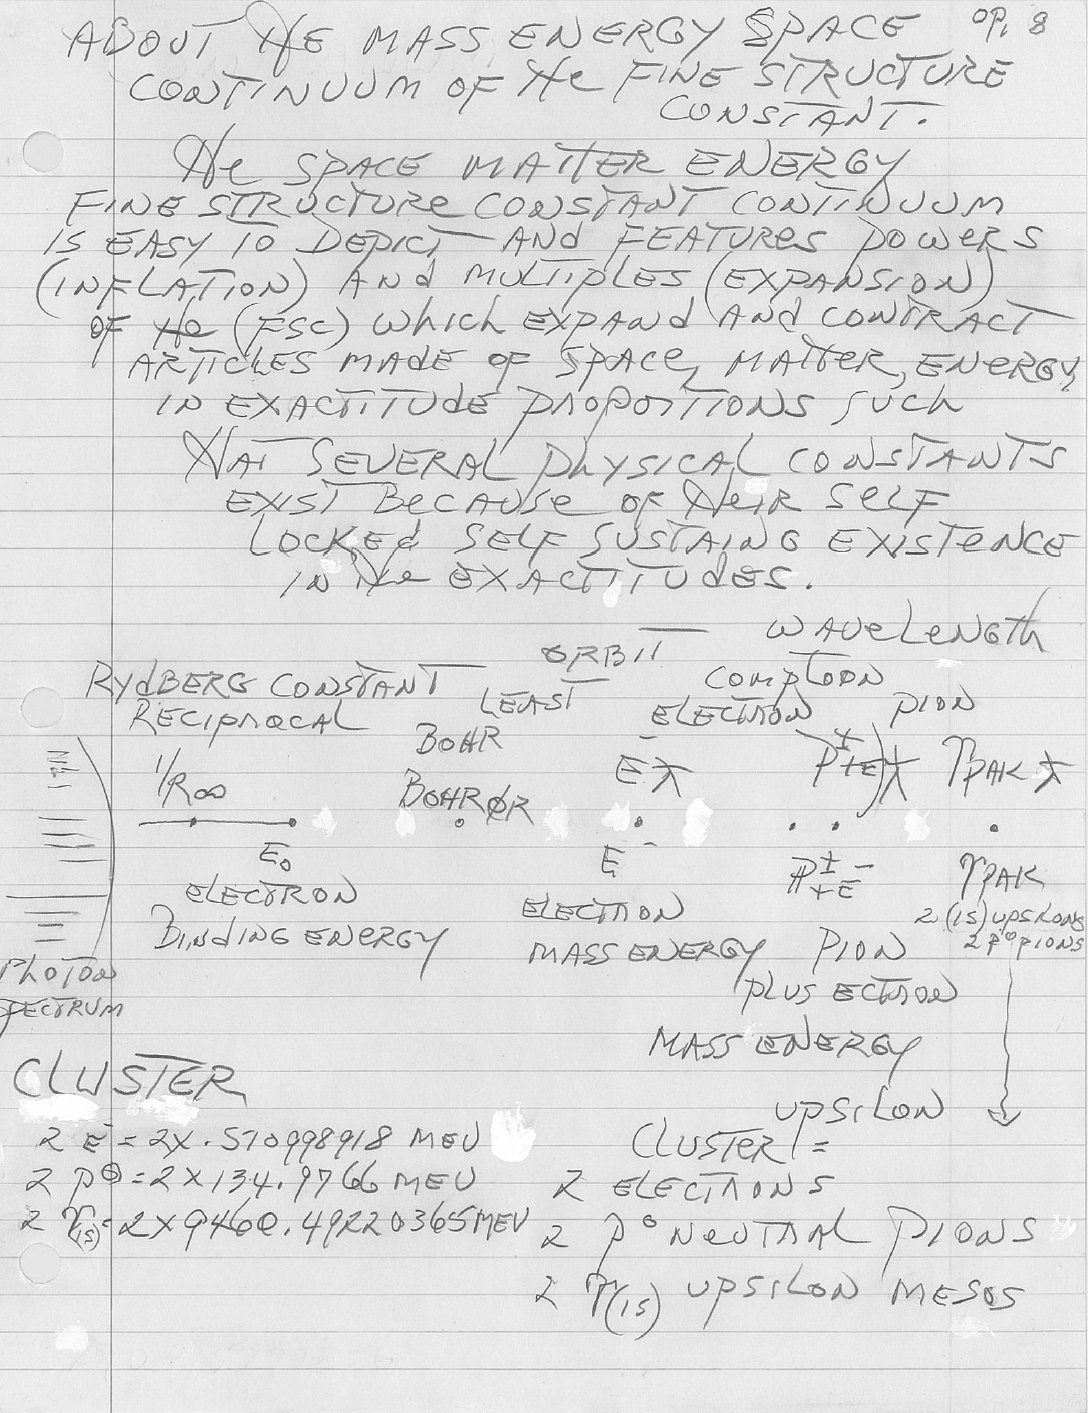 ABOUT THE MASS ENERGY SPACE OP, 8
CONTINUUM OF THE FINE STRUCTURE
CONSTANT.
THE SPACE MATTER ENERGY
FINE STRUCTURE CONSTANT CONTINUUM
IS EASY TO DEPICT AND FEATURES POWERS
(INFLATION) AND MULTIPLES (EXPANSION)
OF THE (FSC) WHICH EXPAND AND CONTRACT
ARTICLES MADE OF SPACE, MATTER, ENERGY,
IN EXACTITUDE PROPORTIONS SUCH
THAT SEVERAL PHYSICAL CONSTANTS
EXIST BECAUSE OF THEIR SELF
LOCKED SELF SUSTAING EXISTENCE
IN THE EXACTITUDES.
WAVELENGTH
ORBIT
RYDBERG CONSTANT LEAST COMPTOON
RECIPROCAL BOHR ELECTRON PION
1/R∞ BOHR ØR E⁻ƛ P±+E⁻)ƛ ϒPAK ƛ
E₀ E⁻ P±+E⁻ ϒPAK
ELECTRON ELECTRON 2 (1S) UPSILONS
BINDING ENERGY MASS ENERGY PION 2 P⁰ PIONS
PHOTON PLUS ECTRON
SPECTRUM MASS ENERGY
CLUSTER UPSILON
2 E⁻ = 2X.510998918 MEV CLUSTER =
2 P⁰ = 2X134.9766 MEV 2 ELECTRONS
2 ϒ(1S) = 2X9460.49220365 MEV 2 P⁰ NEUTRAL PIONS
2 ϒ(1S) UPSILON MESOS